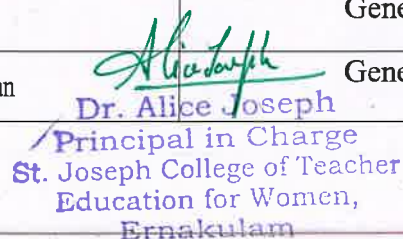 Gene
an
Alice Joseph
Gene
Dr. Alice Joseph
Principal in Charge
St. Joseph College of Teacher
Education for Women,
Ernakulam